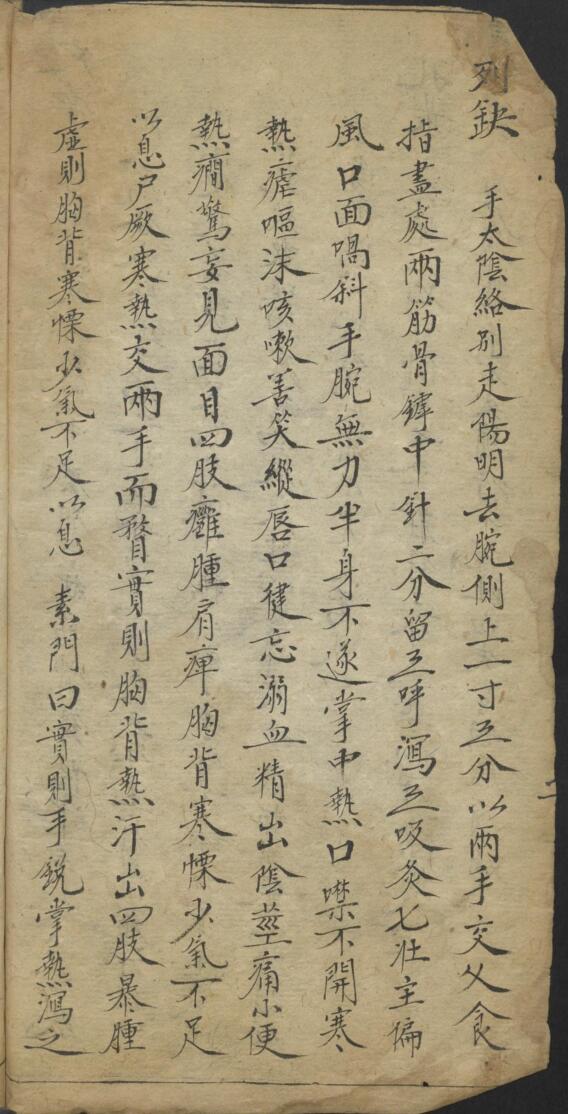 列缺　手太陰絡别走陽明去腕側上一寸五分以兩手交乂食
指盡處兩筋骨罅中針二分留五呼瀉五吸灸七壯主偏
風口面喎斜手腕無力半身不遂掌中熱口噤不開寒
熱瘧嘔沫咳嗽善笑縱唇口健忘溺血精出陰莖痛小便
熱癎驚妄見面目四肢癰腫肩痺胸背寒慄少氣不足
以息尸厥寒熱交兩手而瞀實則胸背熱汗出四肢暴腫
虛則胸背寒慄少氣不足以息　素門曰實則手銳掌熱瀉之
二